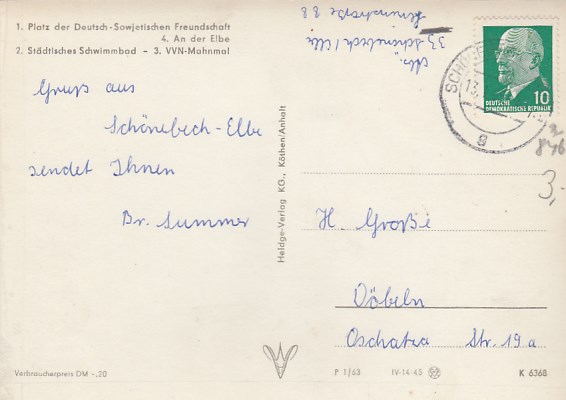 1. Platz der Deutsch-Sowjetischen Freundschaft
4. An der Elbe
2. Städtisches Schwimmbad - 3. VVN-Mahnmal
Gruß aus
Schönebeck-Elbe
sendet Ihnen
Br. Summer
Verbraucherpreis DM -,20
Heldge-Verlag KG., Köthen/Anhalt
Abs.
33 Schönebeck/Elbe
88
SCHÖNE
13.
a
DEUTSCHE
DEMOKRATISCHE REPUBLIK
10
846
3,-
H. Große
Döbeln
Oschatza Str. 19a
P 1/63 IV-14-45 K 6368